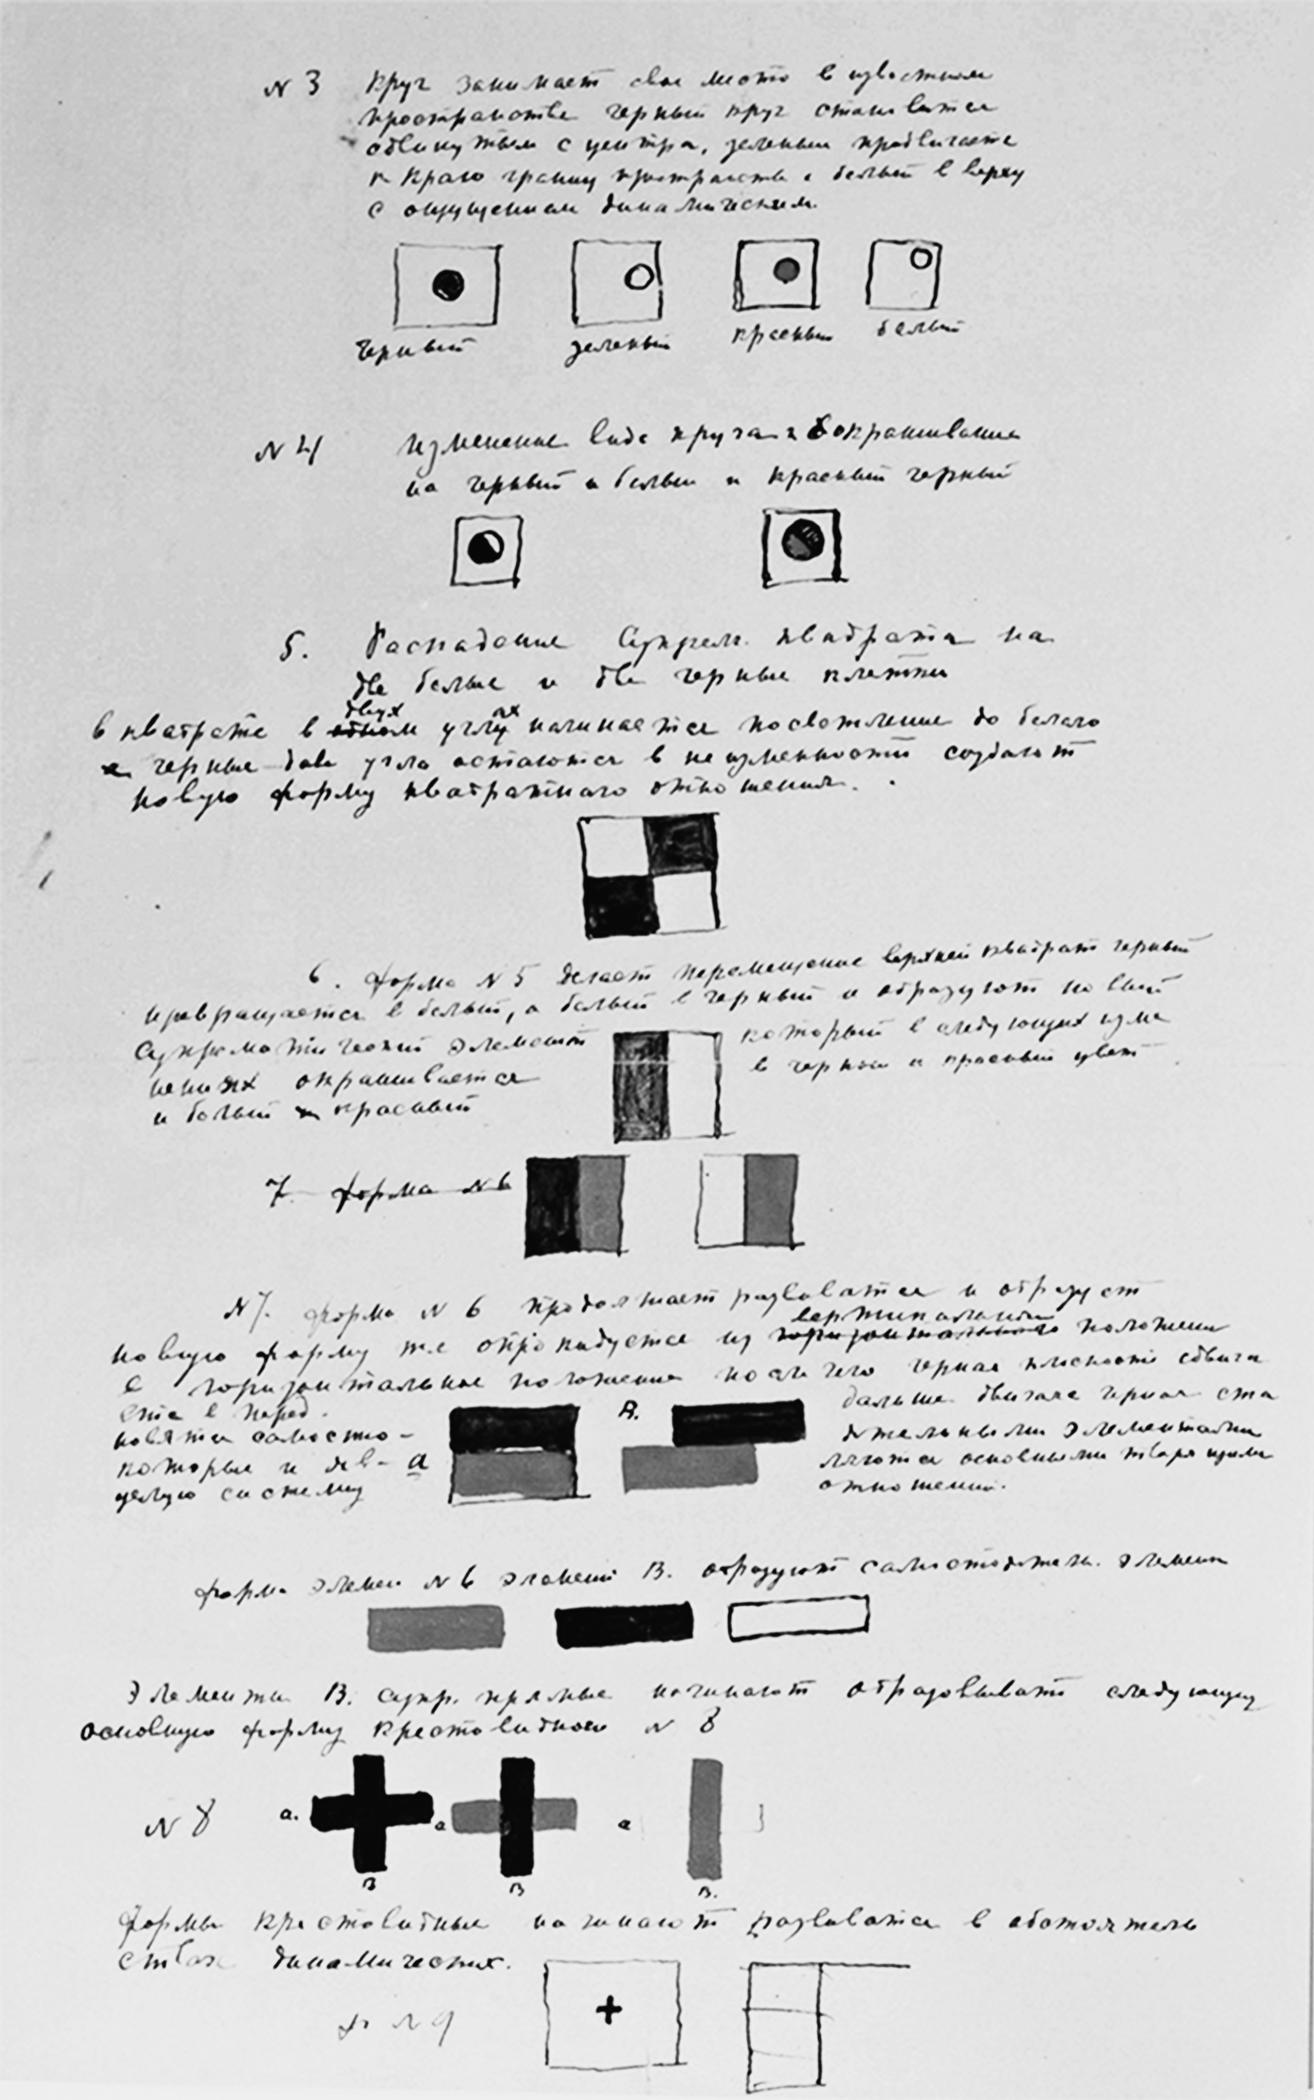 N 3 Круг занимает свое место в известном
пространстве черный круг становится
сдвинутым с центра, зеленый продвигается
к краю границ пространства и белый в верху
с ощущением динамическим.
черный зеленый красный белый
N 4 Изменение вида круга и окрашивание
на черный и белый и красный черный
5. Распадение Супрем. квадрата на
две белые и две черные клетки
двух ах
в квадрате в одном углу начинается посветление до белаго
черные два угла остаются в неизменности создают
новую форму квадратнаго отношения.
6. форма N 5 делает перемещение верхней квадрат черный
превращается в белый, а белый в черный и образуют новый
супрематический элемент который в следующих изме
нениях окрашивается в черный и красный цвет
и белый и красный
7. форма N 6
N 7. форма N 6 продолжает развиватся и образует
вертикальнаго
новую форму т.е опрокидуется из горизонтальнаго положения
в горизонтальное положение после чего черная плоскость сдвига
ется в перед. В. дальше двигаясь черная ста
новятся самостно- ятельными элементами
которые и яв- а ляются основными творя
целую систему отношений.
форма элемен N 6 элемент В. образуют самостоятельн. элемент
Элементы В. супр. прямые начинают образовывать следующую
основную форму крестовидною N 8
N 8 а. а а
В В В.
Формы крестовидные начинают развиватся в обстоятель
ствах динамических.
ф N 9